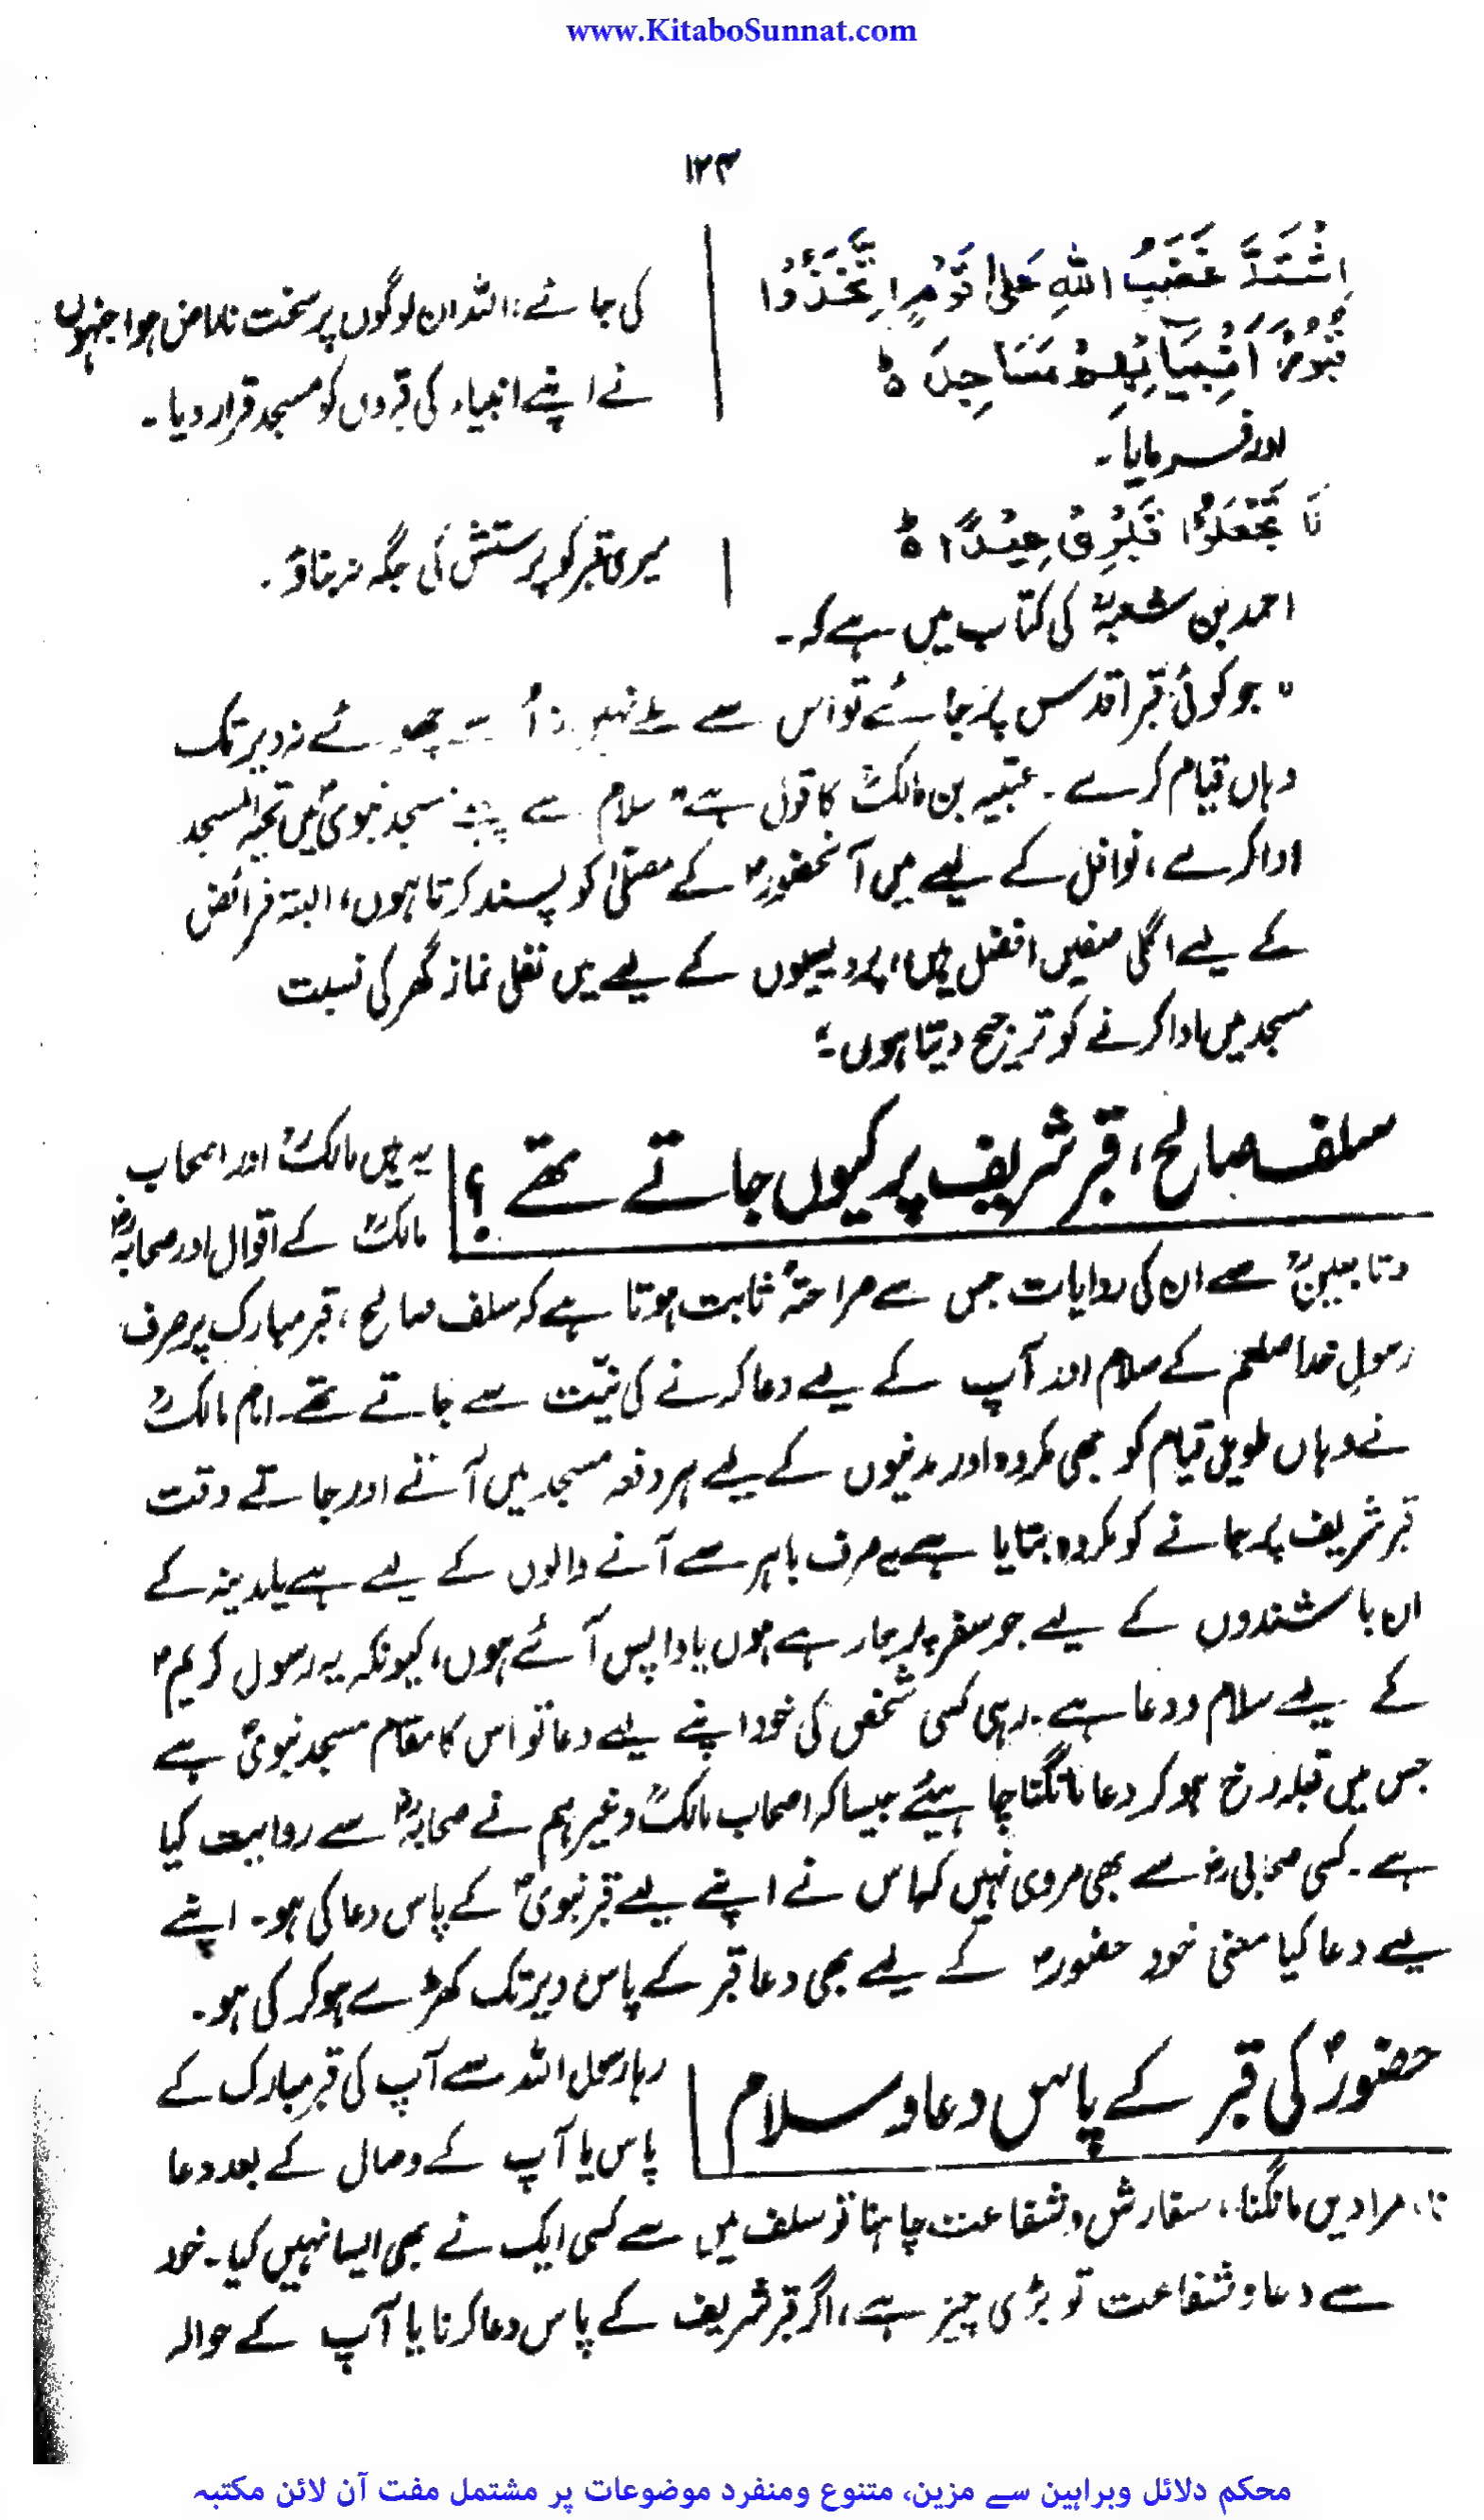 www.KitaboSunnat.com
۱۲۳
اِشْتَدَّ غَضَبُ اللهِ عَلٰى قَوْمٍ اِتَّخَذُوْا
قُبُوْرَ اَنْبِيَآئِهِمْ مَسَاجِدَ ہ
کی جائے، اللہ ان لوگوں پر سخت ناراض ہوا جنہوں
نے اپنے انبیاء کی قبروں کو مسجد قرار دیا۔
اور فرمایا۔
لَا تَجْعَلُوْا قَبْرِیْ عِیْدًا ہ
میری قبر کو پرستش کی جگہ نہ بناؤ۔
احمد بن شعبہؒ کی کتاب میں ہے کہ۔
" جو کوئی قبر اقدس پر جائے تو اس سے نہیں نہ چھوئے نہ دیر تک
وہاں قیام کرے۔ عتبیہ بن مالکؒ کا قول ہے" سلام سے پہلے مسجد نبویؐ میں تحیۃ المسجد
ادا کرے، نوافل کے لیے میں آنحضورؐ کے مصلّٰی کو پسند کرتا ہوں، البتہ فرائض
کے لیے اگلی صفیں افضل ہیں، پردیسیوں کے لیے میں نفلی نماز گھر کی نسبت
مسجد میں ادا کرنے کو ترجیح دیتا ہوں۔"
سلف صالح، قبر شریف پر کیوں جاتے تھے؟
یہ ہیں مالکؒ اور اصحاب
مالکؒ کے اقوال اور صحابہؓ
و تابعینؒ سے ان کی روایات جس سے صراحتہً ثابت ہوتا ہے کہ سلف صالح، قبر مبارک پر صرف
رسولِ خدا صلعم کے سلام اور آپ کے لیے دعا کرنے کی نیّت سے جاتے تھے۔ امام مالکؒ
نے وہاں طویل قیام کو بھی مکروہ اور مدنیوں کے لیے ہر دفعہ مسجد میں آتے اور جاتے وقت
قبر شریف پر جانے کو مکروہ بتایا ہے یہ صرف باہر سے آنے والوں کے لیے ہے یا مدینہ کے
ان باشندوں کے لیے جو سفر پر جا رہے ہوں یا واپس آئے ہوں، کیونکہ یہ رسول کریمؐ
کے لیے سلام و دعا ہے۔ رہی کسی شخص کی خود اپنے لیے دعا تو اس کا مقام مسجد نبویؐ ہے
جس میں قبلہ رخ ہو کر دعا مانگنا چاہیئے جیسا کہ اصحاب مالکؒ وغیرہم نے صحابہؓ سے روایت کیا
ہے۔ کسی صحابی رضؓ سے بھی مروی نہیں کہ اس نے اپنے لیے قبر نبویؐ کے پاس دعا کی ہو۔ اپنے
لیے دعا کیا معنی خود حضورؐ کے لیے بھی دعا قبر کے پاس دیر تک کھڑے ہو کر کی ہو۔
حضورؐ کی قبر کے پاس دعا و سلام
رہا رسول اللہ سے آپ کی قبر مبارک کے
پاس یا آپ کے وصال کے بعد دعا
مرادیں مانگنا، سفارش و شفاعت چاہنا تو سلف میں سے کسی ایک نے بھی ایسا نہیں کیا۔ خود
سے دعا و شفاعت تو بڑی چیز ہے، اگر قبر شریف کے پاس دعا کرنا یا آپ کے حوالہ
محکم دلائل وبراہین سے مزین، متنوع ومنفرد موضوعات پر مشتمل مفت آن لائن مکتبہ